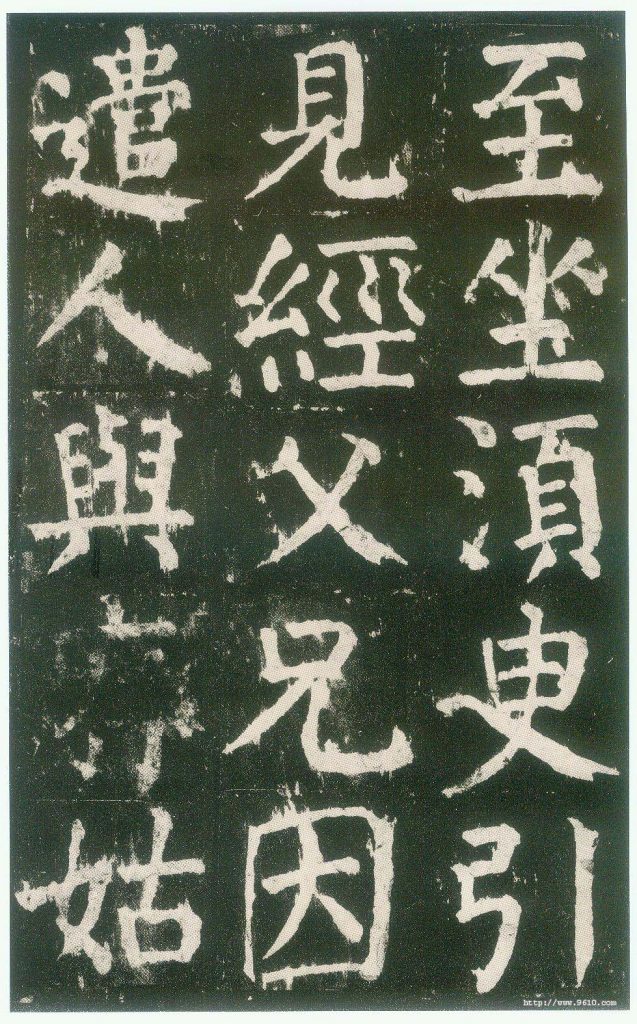 至坐湏臾引
見經父兄因
遣人與姑
http://www.9610.com